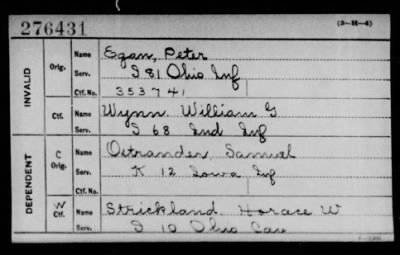 276431
(3-H-4)
INVALID
Orig.
Name Egan, Peter
Serv. I 81 Ohio Inf
Ctf. No. 353741
Ctf.
Name Wynn William G
Serv. I 68 Ind Inf
DEPENDENT
C
Orig.
Name Ostrander, Samuel
Serv. K 12 Iowa Inf
Ctf. No.
W
Ctf.
Name Strickland Horace W
Serv. I 10 Ohio Cav